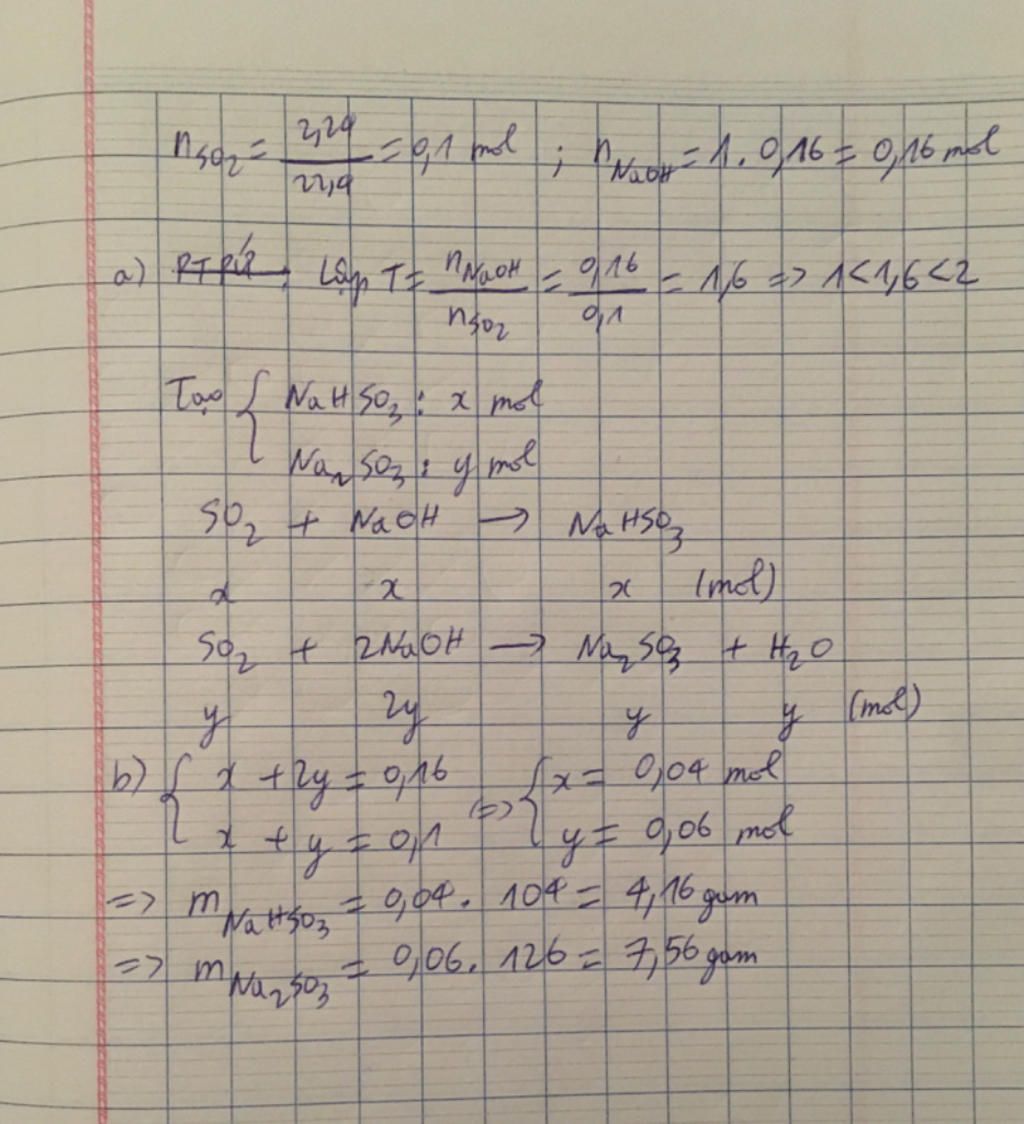 nSO₂ = 2,24/22,4 = 0,1 mol ; nNaOH = 1 . 0,16 = 0,16 mol
a) PTPỨ : Lập T = nNaOH/nSO₂ = 0,16/0,1 = 1,6 => 1 < 1,6 < 2
Tạo { NaHSO₃ : x mol
Na₂SO₃ : y mol
SO₂ + NaOH → NaHSO₃
x x x (mol)
SO₂ + 2NaOH → Na₂SO₃ + H₂O
y 2y y y (mol)
b) { x + 2y = 0,16 (=> { x = 0,04 mol
x + y = 0,1 y = 0,06 mol
=> mNaHSO₃ = 0,04 . 104 = 4,16 gam
=> mNa₂SO₃ = 0,06 . 126 = 7,56 gam